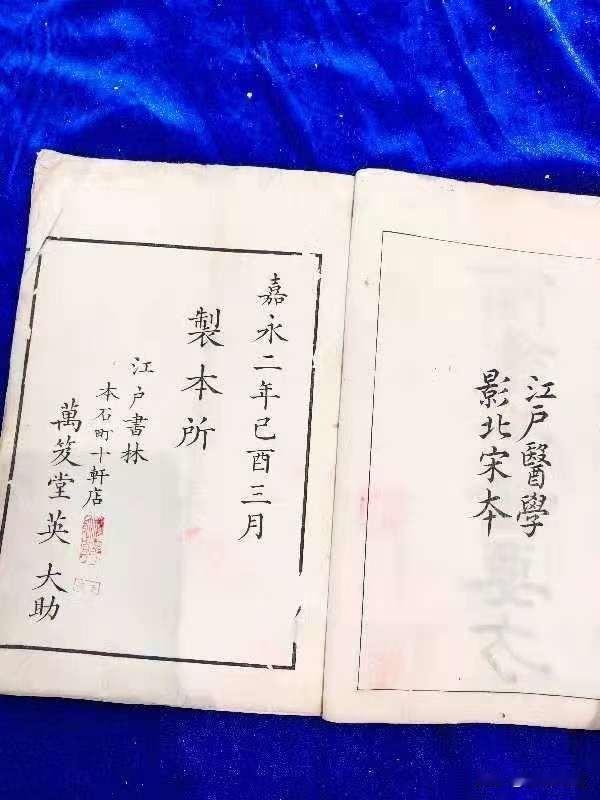 江戸醫學
影北宋本
嘉永二年己酉三月
製本所
江戸書林
本石町十軒店
萬笈堂英大助